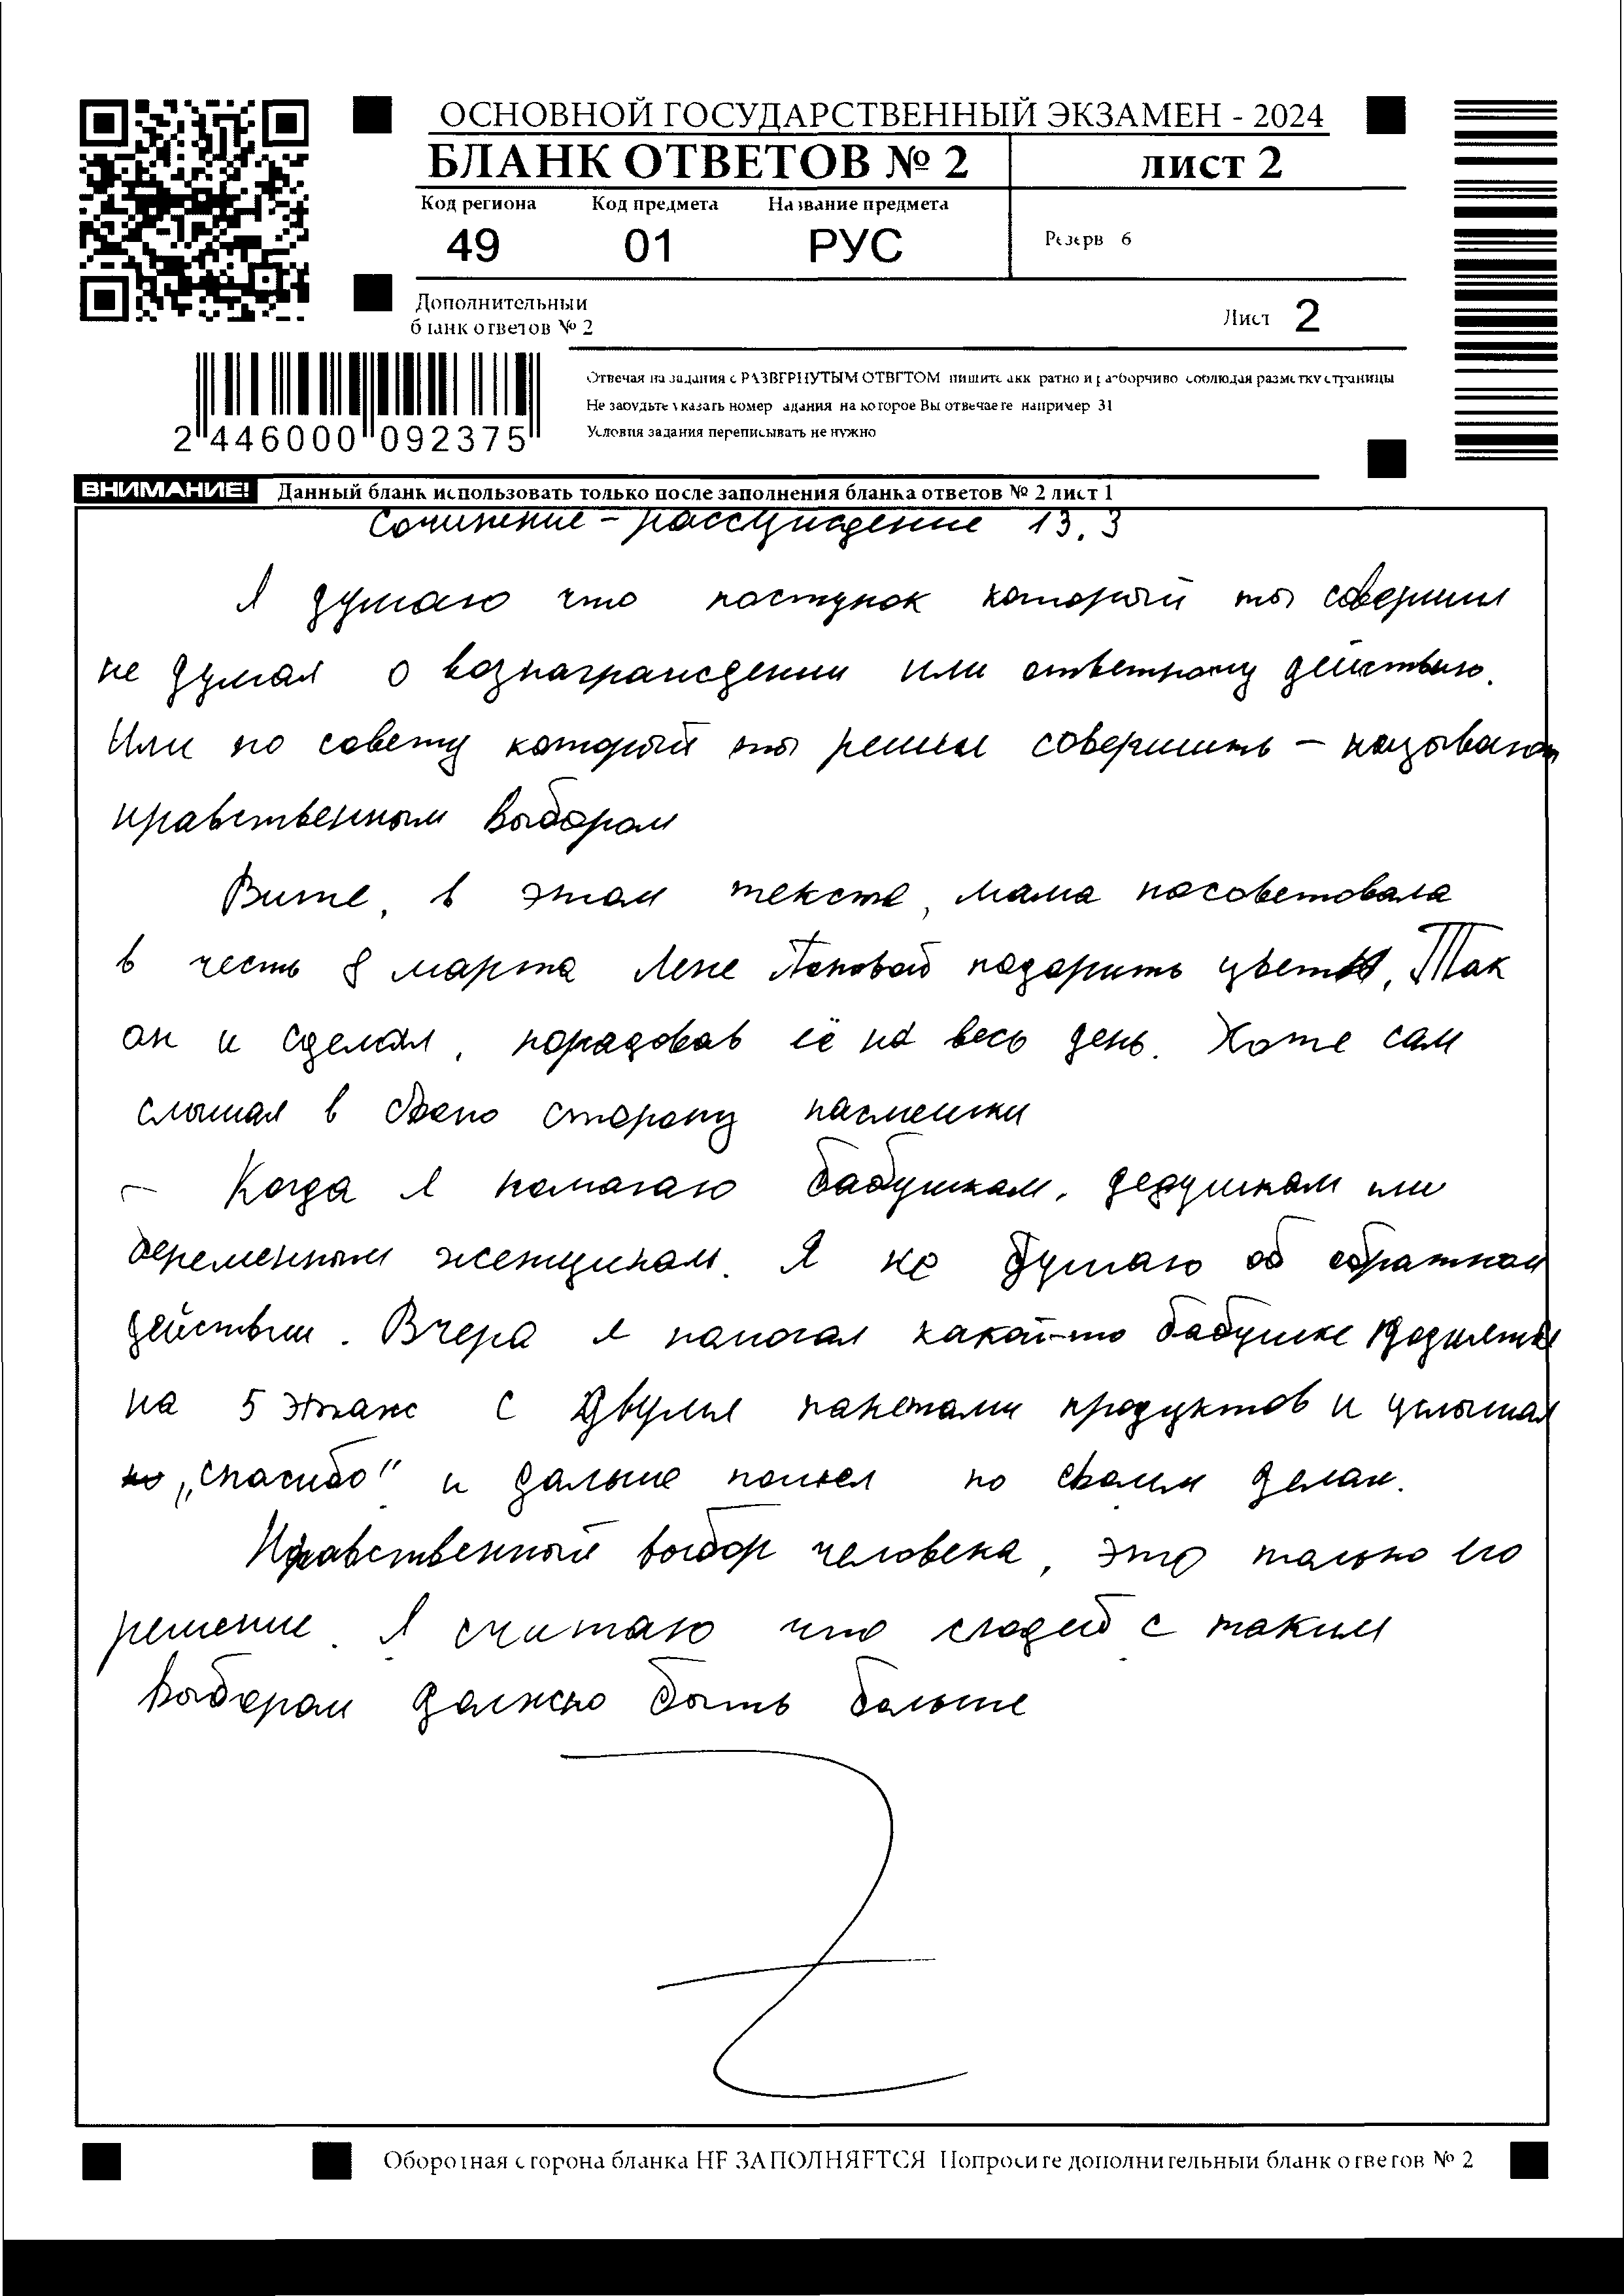 ОСНОВНОЙ ГОСУДАРСТВЕННЫЙ ЭКЗАМЕН - 2024
БЛАНК ОТВЕТОВ № 2
ЛИСТ 2
Код региона Код предмета Название предмета
49 01 РУС
Резерв 6
Дополнительный
бланк ответов № 2
Лист 2
Отвечая на задания с РАЗВЕРНУТЫМ ОТВЕТОМ пишите аккуратно и разборчиво соблюдая разметку страницы
Не забудьте указать номер задания на которое Вы отвечаете например 31
Условия задания переписывать не нужно
2 446000 092375
ВНИМАНИЕ! Данный бланк использовать только после заполнения бланка ответов № 2 лист 1
Сочинение - рассуждение 13.3
Я думаю что поступок который ты совершил
не думая о вознаграждении или ответному действию.
Или по совету который ты решил совершить – называют
нравственным выбором
Вите, в этом тексте, мама посоветовала
в честь 8 марта Лене Поповой подарить цветы. Так
он и сделал, порадовав её на весь день. Хоте сам
слышал в свою сторону насмешки
Когда я помогаю бабушкам, дедушкам или
беременным женщинам. Я не думаю об обратном
действии. Вчера я помогал какой-то бабушке
на 5 этаж с двумя пакетами продуктов и услышал
„спасибо" и дальше пошел по своим делам.
Нравственный выбор человека, это только его
решение. Я считаю что людей с таким
выбором должно быть больше
Оборотная сторона бланка НЕ ЗАПОЛНЯЕТСЯ Попросите дополнительный бланк ответов № 2